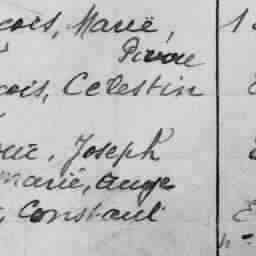 çois, Marie,
Pierre
çois, Celestin
rie, Joseph
marie, ange
, Constant